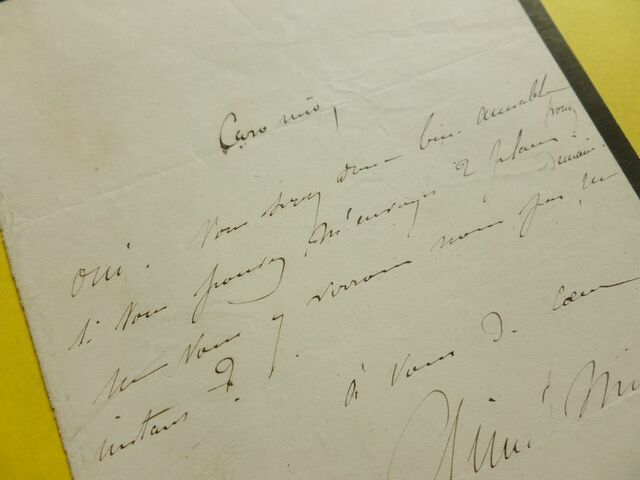 Caro mio,
Oui. Vous serez donc bien aimable
si vous pouvez m'envoyer 2 places pour
demain.
Ne vous y verrons nous pas, un
instant ?
à vous de coeur